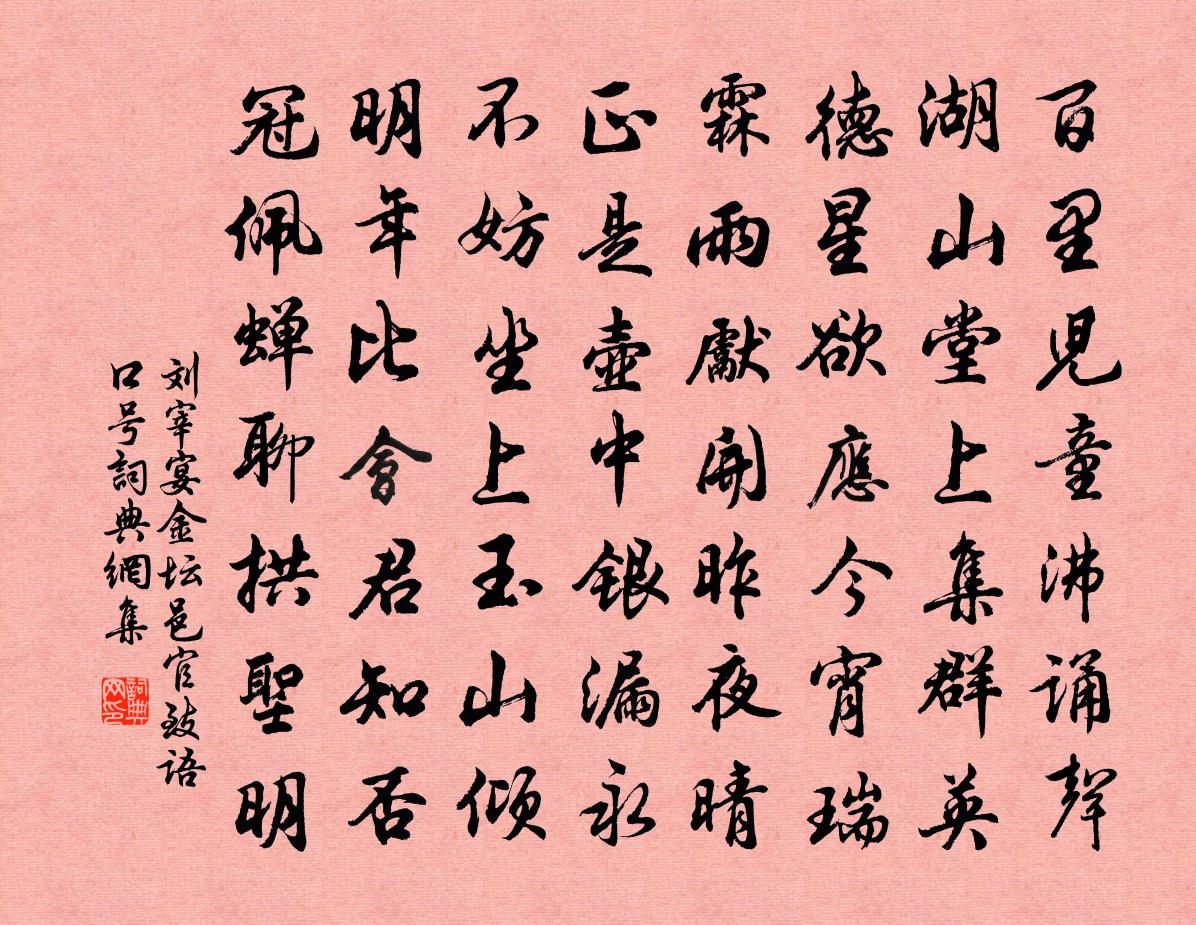 百里児童沸诵聲
湖山堂上集群英
德星欲應今宵瑞
霖雨獻開昨夜晴
正是壺中銀漏永
不妨坐上玉山傾
明年比會君知否
冠佩蝉聊拱聖明
刘宰宴金坛邑官致语
口号詞典網集
詞典网印